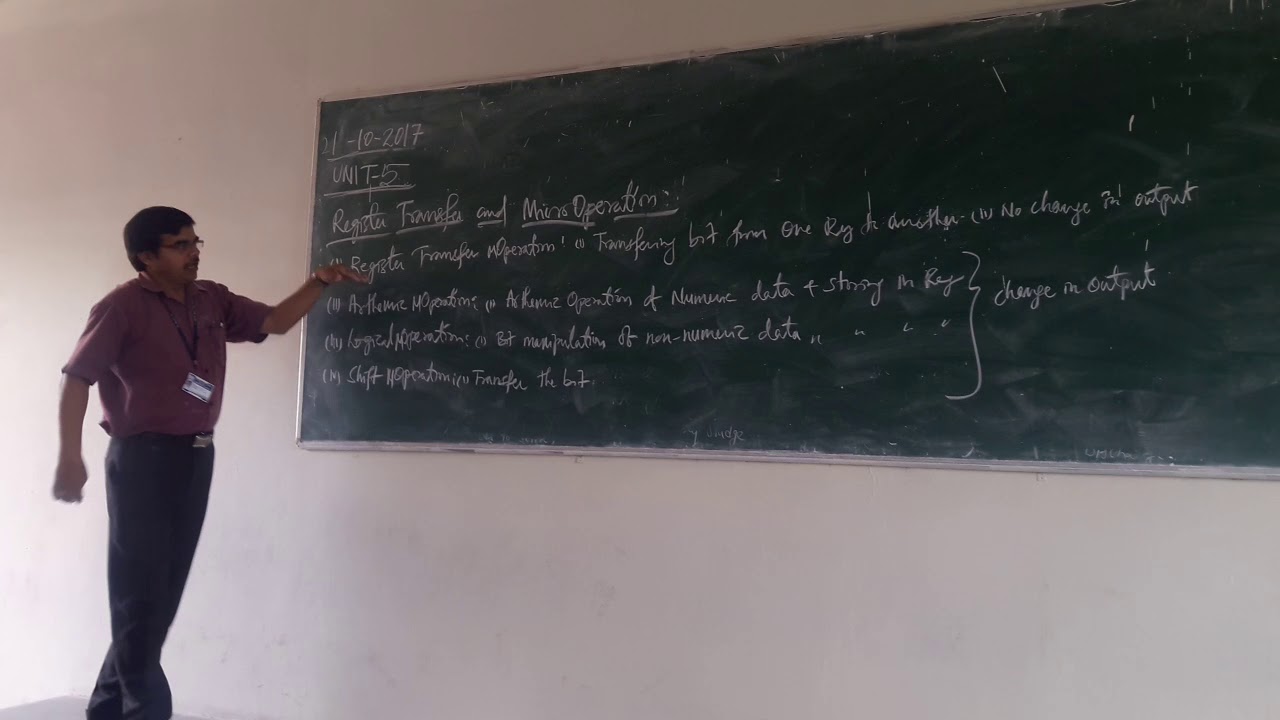 21-10-2017
UNIT-5
Register Transfer and MicroOperation:
(i) Register Transfer MOperation: (i) Transferring bit from One Reg to another. (ii) No change in output
(ii) Arthemic MOperation: (i) Arthemic Operation of Numeric data & string in Reg
(iii) Logical MOperation: (i) Bit manipulation of non-numeric data " " " "
(iv) Shift MOperation: (i) Transfer the bit.
change in output